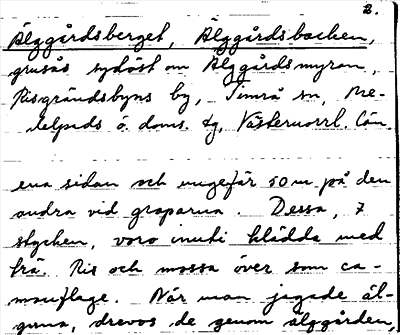 2.
Älggårdsberget, Älggårdsbacken,
grusås sydöst om Älggårdsmyran,
Risgrändsbyns by, Timrå sn, Me-
delpads ö. doms. tg, Västernorrl. län.
ena sidan och ungefär 50 m på den
andra vid groparna. Dessa, 7
stycken, voro inuti klädda med
trä. Ris och mossa över som ca-
mouflage. När man jagade äl-
garna, drevos de genom älggården,